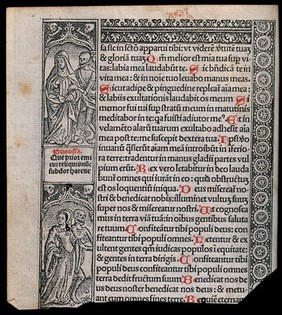 sa sic in scto apparui tibi: vt viderē v̄tutē tuā
& gloriā tuā. Qm̄ melior est mīa tua sup vi
tas: labia mea laudabūt te. Sic bn̄dicā te in
vita mea: & in noīe tuo leuabo manus meas.
Sicut adipe & pinguedine repleat aīa mea:
& labiis exultationis laudabit os meum Si
memor fui tui sup stratū meum in matutinis
meditabor in te: qa fuisti adiutor meꝰ. Et in
velamēto alarū tuarum exultabo adhesit aīa
mea post te: me suscepit dextera tua. Ipsi vo
in vanū q̄sierūt aīam meā introibūt in īferio
ra terre: tradentur in manus gladii partes vul
pium erūt. Rex vero letabitur in deo lauda
bunt omnes qui iurāt in eo: quia obstructū
est os loquentiū iniqua. Deus misereat no
stri & benedicat nobis: illuminet vultuȝ suuȝ
super nos & misereatur nostri. Ut cognosca
mus in terra viā tuā: in oībus gentibus saluta
re tuum. Confiteantur tibi populi deus: con
fiteantur tibi populi omnes. Letentur & ex
ultent gentes: qm̄ iudicas populos ī equitate:
& gentes in terra dirigis. Confiteantur tibi
populi deus confiteantur tibi populi omnes
terra dedit fructum suum. Benedicat nos de
us deus noster benedicat nos deus: & metu
ant eum omnes fines terre. Requiē eternam